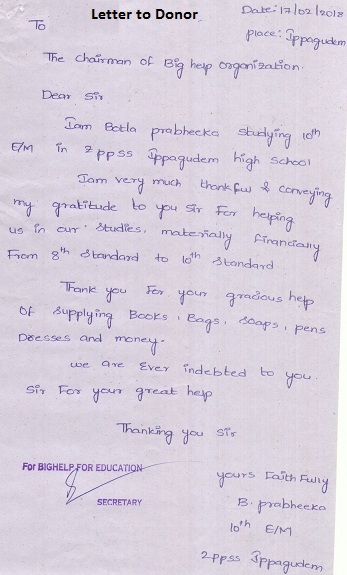 Letter to Donor
Date: 17/02/2018
To
place: Ippagudem
The chairman of Big help organization.
Dear Sir
Iam Botla prabheeka studying 10th
E/M in zppss Ippagudem high school
Iam very much thankful & conveying
my gratitude to you sir For helping
us in our studies, materially financially
From 8th standard to 10th standard
Thank you For your gracious help
Of supplying Books, Bags, soaps, pens
Dresses and money.
we are Ever indebted to you.
Sir For your great help
Thanking you sir
For BIGHELP FOR EDUCATION
SECRETARY
yours Faith Fully
B. prabheeka
10th E/M
zppss Ippagudem